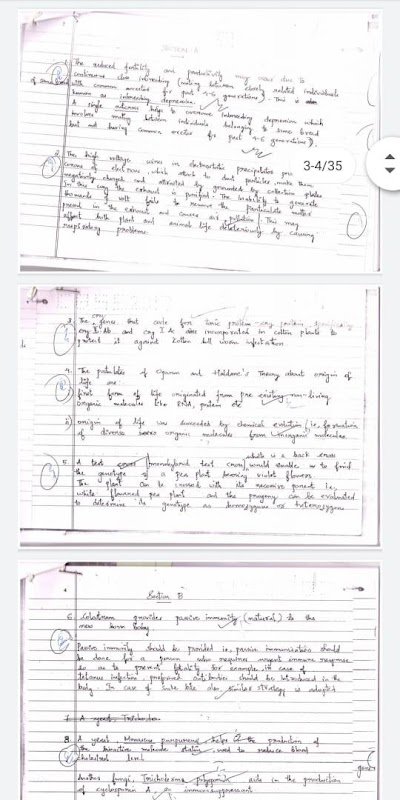 SECTION A
1. The reduced fertility and productivity may occur due to
continuous close inbreeding (mating between closely related individuals
of same breed with common ancestor for past 4-6 generations). This is also
known as inbreeding depression.
A single outcross helps to overcome inbreeding depression which
involves mating between individuals belonging to same breed
but not having common ancestor for past 4-6 generations).
2. The high voltage wires in electrostatic precipitators give
corona of electrons, which attach to dust particles, make them
negatively charged and attracted by grounded by collection plates
In this way the exhaust is purified. The inability to generate
thousands of volt fails to remove the particulate matter
present in the exhaust and causes air pollution. This may
affect both plant and animal life deleteriously by causing
respiratory problems.
3-4/35
3. The cry genes that code for toxic protein - cry protein,
cry I Ab and cry I Ac are incorporated in cotton plants to
protect it against cotton boll worm infestation
4. The postulates of Oparin and Haldane's Theory about origin of
life are:
i) first form of life originated from pre existing non-living
organic molecules like RNA, protein etc
ii) origin of life was succeeded by chemical evolution, i.e. formation
of diverse organic molecules from inorganic molecules.
which is a back cross
5. A test cross (monohybrid test cross) would enable us to find
the genotype of a pea plant bearing violet flowers.
The plant can be crossed with its recessive parent i.e,
white flowered pea plant and the progeny can be evaluated
to determine its genotype as homozygous or heterozygous
Section B
6. Colostrum provides passive immunity (natural) to the
new born baby
Passive immunity should be provided ie, passive immunisation should
be done for a person who requires urgent immune response
so as to prevent fatality for example, in case of
tetanus infection, preformed antibodies should be introduced in the
body. In case of snake bite also, similar strategy is adopted
7. A yeast, Trichoderma
8. A yeast, Monascus purpureus helps in the production of
the bioactive molecule statin, used to reduce blood
cholesterol level.
Another fungi, Trichoderma polysporum aids in the production
of cyclosporin A, an immunosuppressant